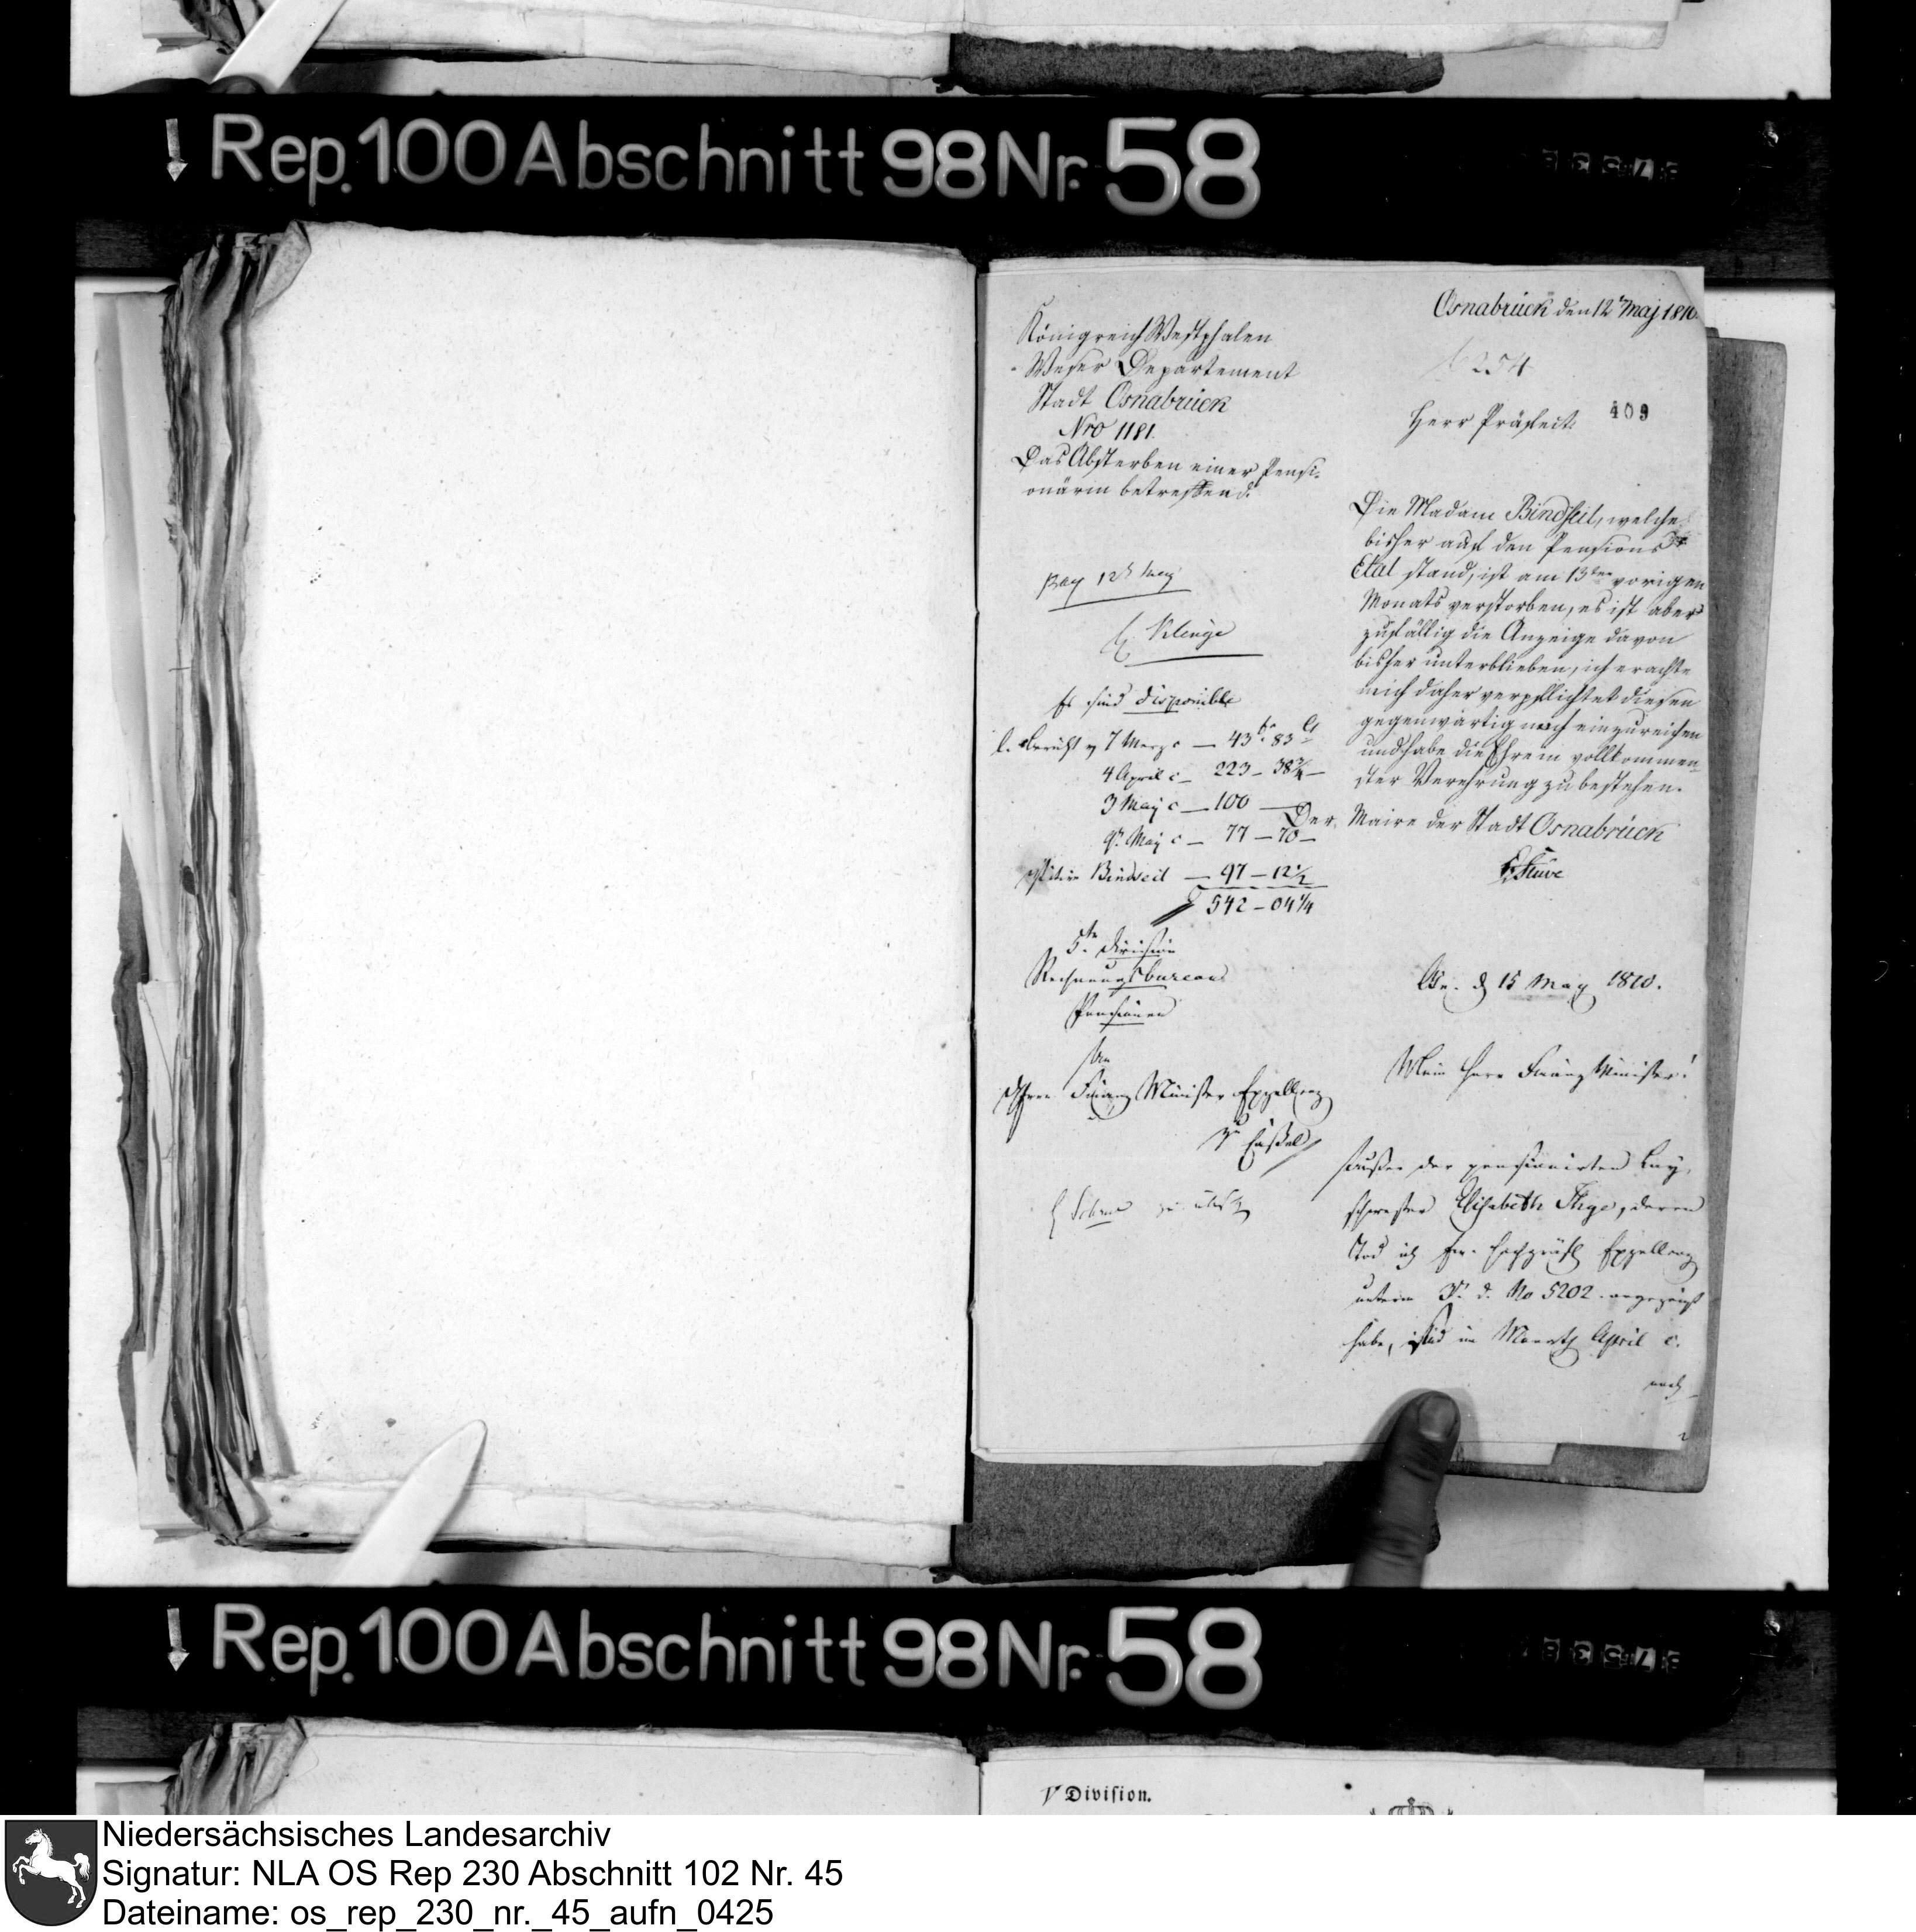 Rep. 100 Abschnitt 98 Nr. 58
Osnabrück den 12t Maj 1810.
Königreich Westphalen
Weser Departement
Stadt Osnabrück
Nro 1181.
Das Absterben einer Pensi-
onärin betreffend.
254
409
Herr Präfect.
Die Madam Bindseil, welche
bisher auf den Pensions
Etat stand, ist am 13ten vorigen
Monats verstorben, es ist aber
zufällig die Anzeige davon
bisher unterblieben, ich erachte
mich daher verpflichtet diesen
gegenwärtig noch einzureichen
und habe die Ehre in vollkommen-
ster Verehrung zu bestehen.
Der Maire der Stadt Osnabrück
Stüve
12t May
Es sind disponible
Bericht v 7 Merz c — 43 fr 83 Ct
4 April c — 223 — 38 3/4 —
3 May c — 100 —
9t May c — 77 — 70 —
Bindseil — 97 — 12 1/2
542 — 04 1/4
5te Division
Rechnungsbureau
Pensionen
An
Herrn Finanz Minister Exzellenz
zu Cassel
Osn. d 15 May 1810.
Mein Herr Finanz Minister!
Außer der pensionirten Lay-
schwester Elisabeth Thye, deren
Tod ich Ew. Exzellenz
unterm 3t d. No 5202. angezeigt
habe, sind im Monath April c.
noch
Rep. 100 Abschnitt 98 Nr. 58
V Division.
Niedersächsisches Landesarchiv
Signatur: NLA OS Rep 230 Abschnitt 102 Nr. 45
Dateiname: os_rep_230_nr._45_aufn_0425